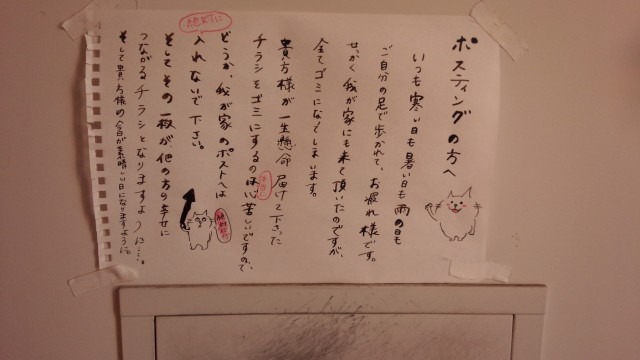 ポスティングの方へ
いつも寒い日も暑い日も雨の日も
ご自分の足で歩かれて、お疲れ様です。
せっかく我が家にも来て頂いたのですが、
全てゴミになってしまいます。
貴方様が一生懸命届けて下さった
チラシをゴミにするのは心苦しいですので、
どうか、我が家のポストへは
絶対に
入れないで下さい。
そしてその一枚が、他の方の幸せに
つながるチラシとなりますように…。
そして貴方様の今日が素晴しい日になりますように。